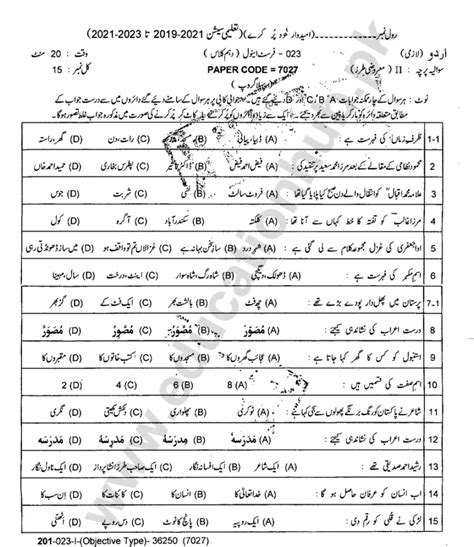 رول نمبر ــــــــــــــــ (امیدوار خود پُر کرے) (تعلیمی سیشن 2021-2019 تا 2023-2021)
اردو (لازمی) 023 - فرسٹ اینول - (دہم کلاس) وقت : 20 منٹ
سوالیہ پرچہ : II (معروضی طرز) PAPER CODE = 7027 کل نمبر : 15
(پہلا گروپ)
نوٹ : ہر سوال کے چار ممکنہ جوابات A ،B ،C اور D دیئے گئے ہیں۔ جوابی کاپی پر ہر سوال کے سامنے دیئے گئے دائروں میں سے درست جواب کے
مطابق متعلقہ دائرہ کو مارکر یا پین سے بھر دیجئے۔ ایک سے زیادہ دائروں کو پُر کرنے یا کاٹ کر پُر کرنے کی صورت میں مذکورہ جواب غلط تصور ہوگا۔
1-1 ظرف زماں کی فہرست ہے : (A) (B) (C) رات، دن (D) گھر، راستہ
2 محمود نظامی کے مقالے کے بعد مرزا محمد سعید پر تنقید کی : (A) فیض احمد فیض (B) ڈاکٹر تاثیر (C) پطرس بخاری (D) حمید احمد خاں
3 علامہ محمد اقبال کو انتقال والے دن صبح کیا پلایا گیا تھا : (A) فروٹ سالٹ (B) (C) شربت (D) جوس
4 مرزا غالب کو تفتہ کا خط کہاں سے آنا تھا : (A) کلکتہ (B) سکندر آباد (C) آگرہ (D) کول
5 ادا جعفری کی غزل مجموعہ کلام سے لی گئی ہے : (A) (B) ساز سخن بہانہ ہے (C) غزالاں تم تو واقف ہو (D) میں ساز ڈھونڈتی رہی
6 اسم مکبر کی فہرست ہے : (A) ڈھولک، دیگچی (B) شاہ رگ، شاہ سوار (C) اینٹ، درخت (D) سال، مہینا
7-1 پرستان میں پھل دار پودے بڑے تھے : (A) چھ فٹ (B) بالشت بھر (C) ایک فٹ کے (D) گز بھر
8 درست اعراب کی نشاندہی کیجئے : (A) مصور (B) مصور (C) مصور (D) مصور
9 استنبول کو کس کا شہر کہا جاتا ہے : (A) عجائب گھروں کا (B) مسجدوں کا (C) کتب خانوں کا (D) مقبروں کا
10 اسم صفت کی قسمیں ہیں : (A) 8 (B) 6 (C) 4 (D) 2
11 شاعر نے پاکستان کو رنگ برنگے پھولوں سے بھی کہا ہے : (A) ٹوکری (B) پھلواری (C) (D) نگری
12 درست اعراب کی نشاندہی کیجئے : (A) مدرسہ (B) مدرسہ (C) مدرسہ (D) مدرسہ
13 رشید احمد صدیقی تھے : (A) ایک شاعر (B) ایک افسانہ نگار (C) ایک صاحب طرز انشا پرداز (D) ایک ناول نگار
14 اب انسان کو عرفان حاصل ہو گا : (A) (B) انسان کا (C) کائنات کا (D)
15 لڑکی نے فقیر کو رقم دی : (A) ایک روپیہ (B) پانچ کا نوٹ (C) دس روپے (D) اٹھنی
201-023-I-(Objective Type)- 36250 (7027)
www.educationhub.pk